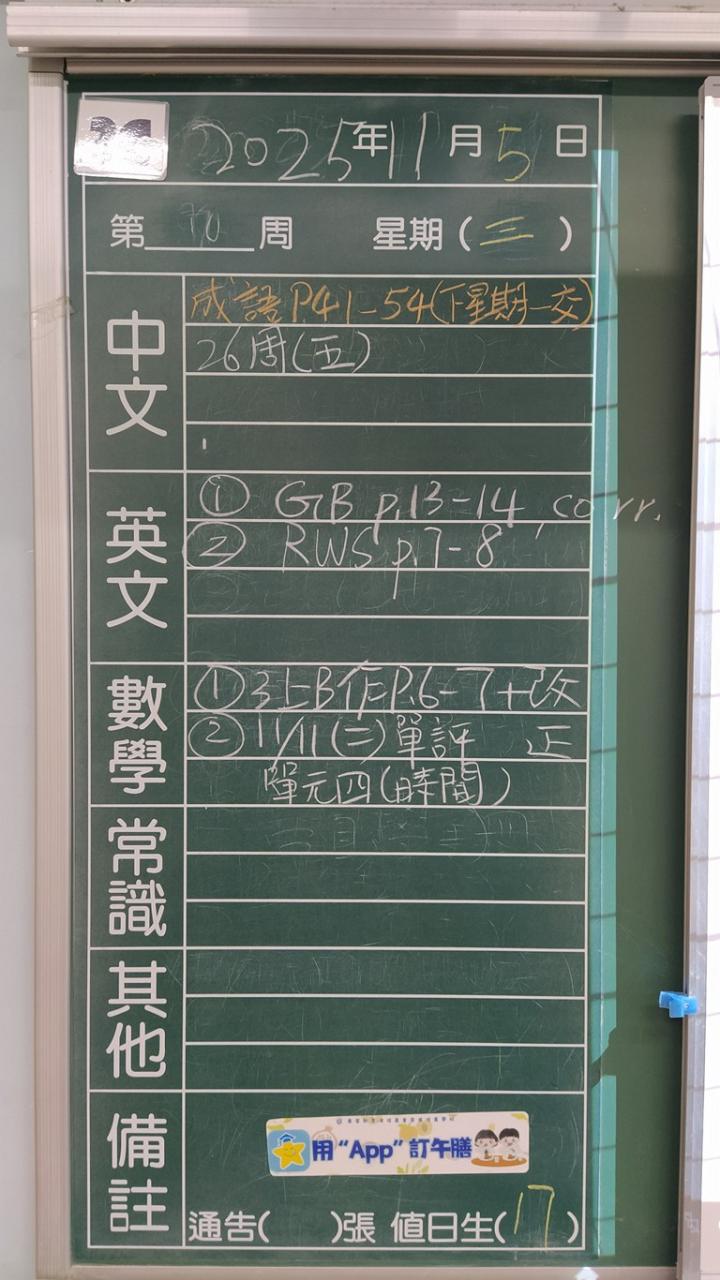 2025年11月5日
第 周 星期(三)
中文
成語P41-54(下星期一交)
26周(五)
英文
① GB p.13-14, corr.
② RWS p.7-8
數學
①3上B作P.6-7+改
②11/11(二)單評 正
單元四(時間)
常識
其他
備註
用“App”訂午膳
通告( )張 值日生(17)